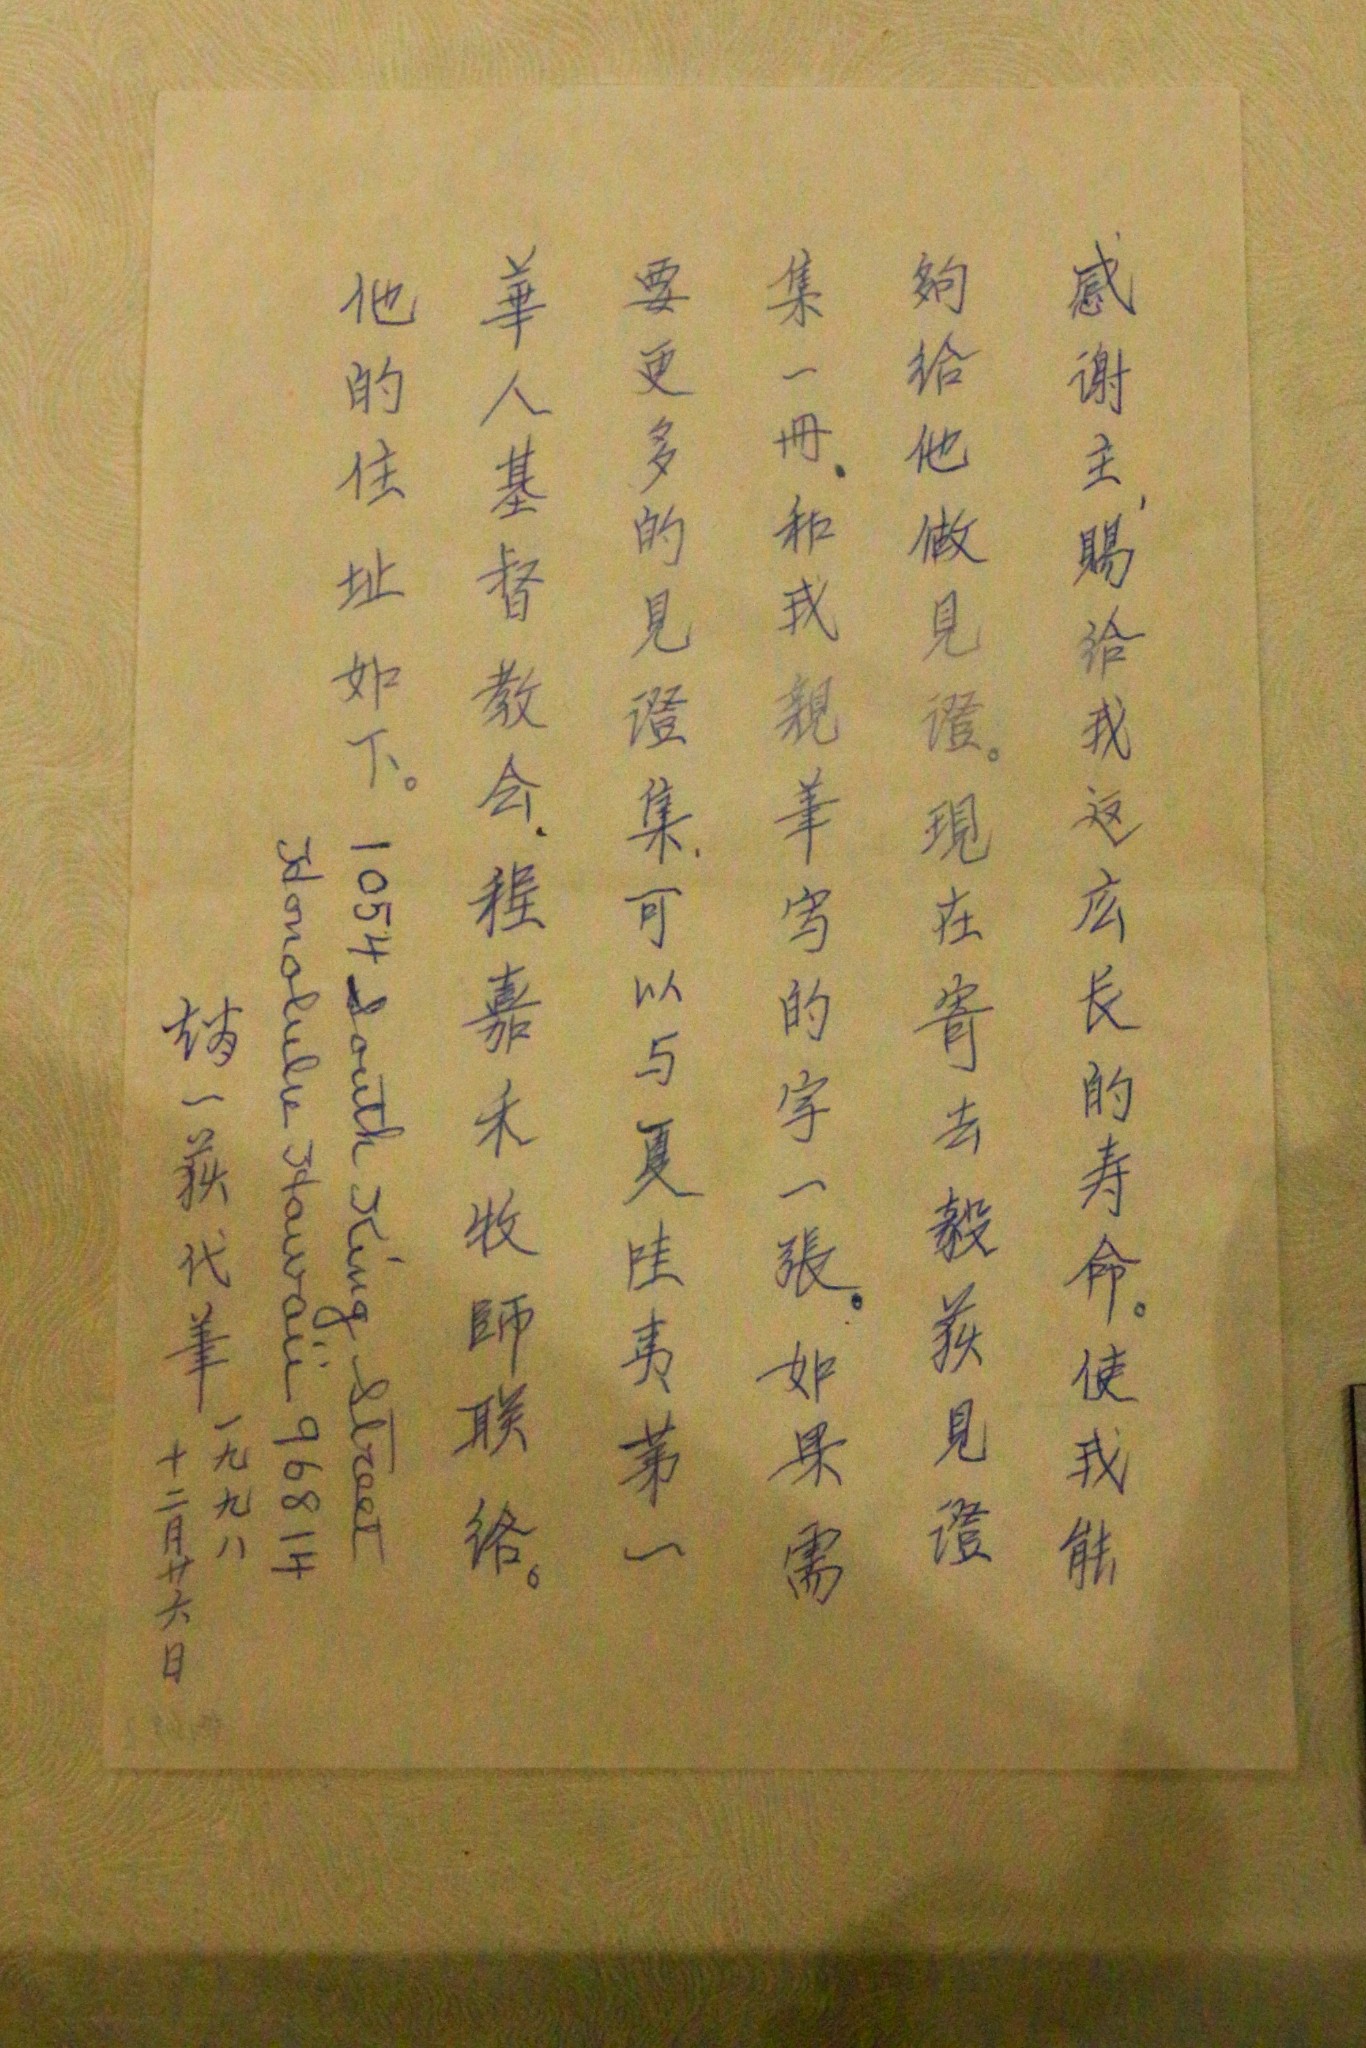 感谢主，賜给我这広长的寿命。使我能
夠给他做見證。現在寄去毅荻見證
集一冊、和我親筆写的字一張。如果需
要更多的見證集，可以与夏哇夷第一
華人基督教会、程嘉禾牧師联络。
他的住址如下。1054 South King Street
Honolulu Hawaii 96814
趙一荻代筆
一九九八
十二月廿六日